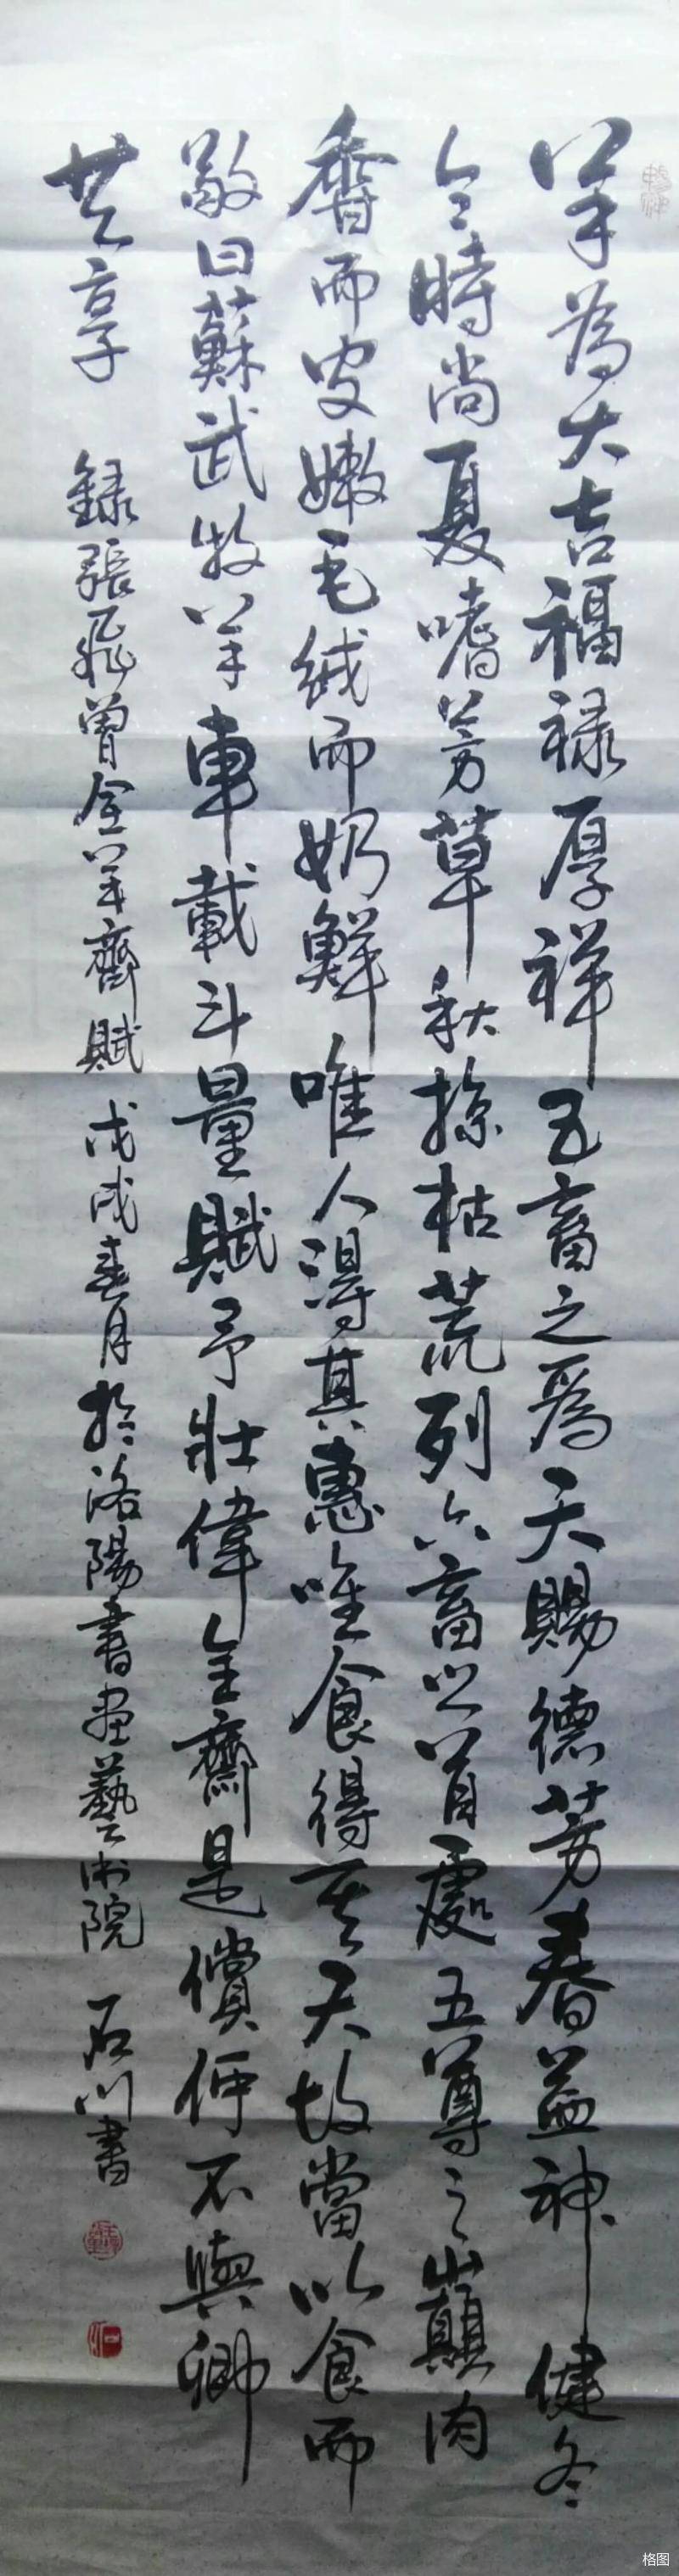 羊為大吉福祿厚祥五畜之爲天賜德芳春益神健冬
令時尚夏嗜芳草秋掠枯荒列六畜之首處五尊之巔肉
香而皮嫩毛絨而奶鮮唯人得其惠唯食得其天故當以食而
敬曰蘇武牧羊車載斗量賦予壯偉全齋是償何不與卿
共享 錄張飛曾全羊齋賦 戊戌春月於洛陽書畫藝術院 石川書
格图